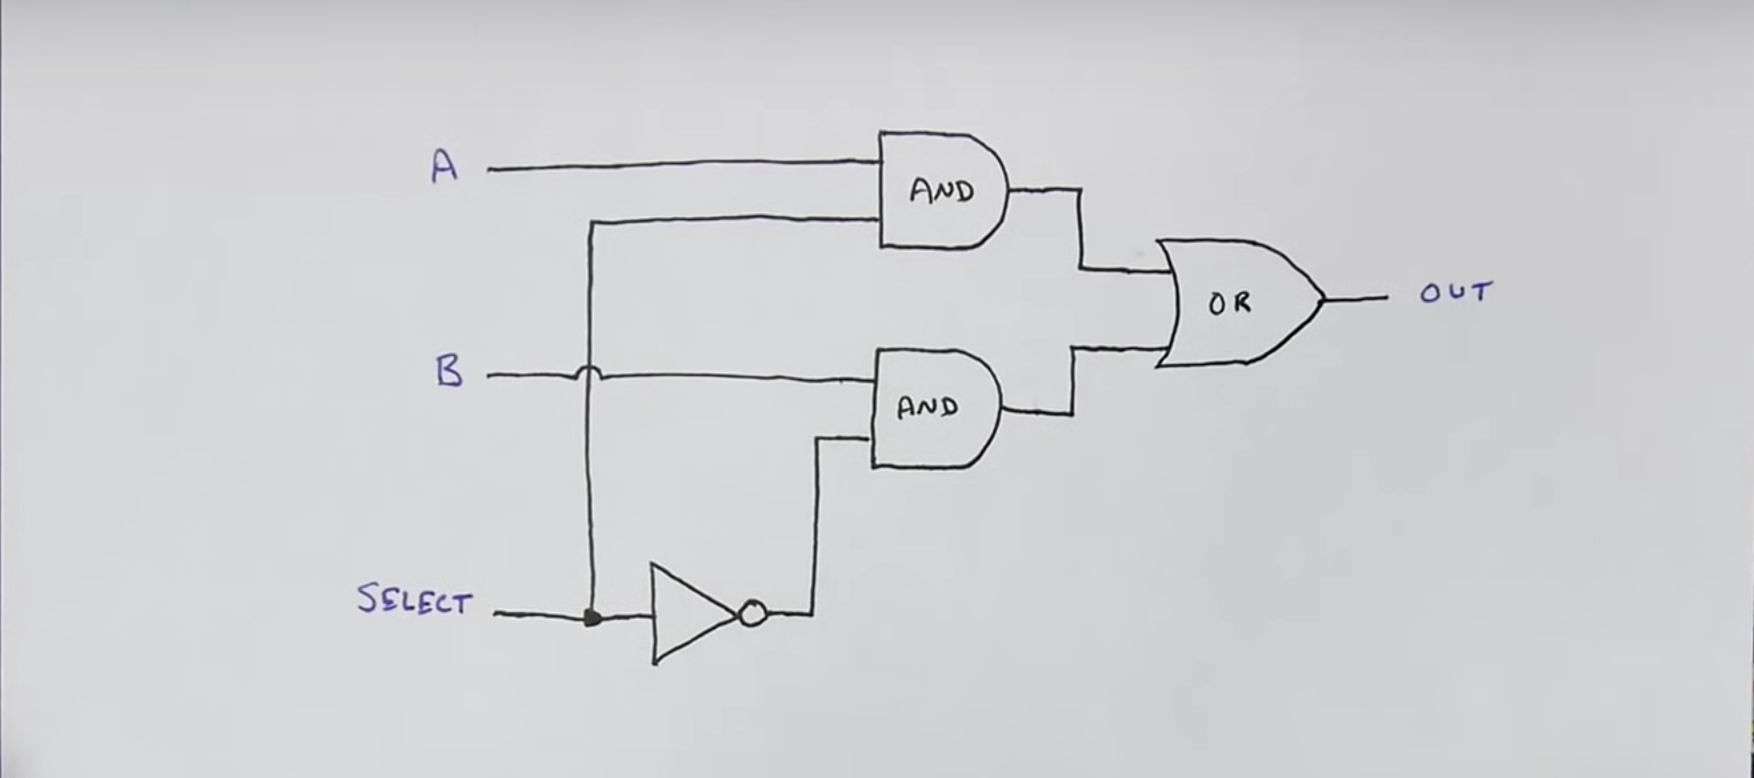 A
AND
OR
OUT
B
AND
SELECT